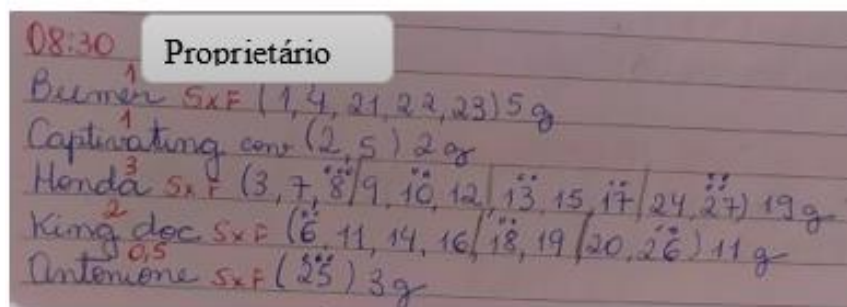 08:30 Proprietário
1
Beemer SxF (1, 4, 21, 22, 23) 5 g
1
Captivating conv (2, 5) 2 g
3
Honda SxF (3, 7, 8/9, 10, 12/13, 15, 17/24, 27) 19 g
2
King doc SxF (6, 11, 14, 16/18, 19/20, 26) 11 g
0,5
Antenione SxF (25) 3 g